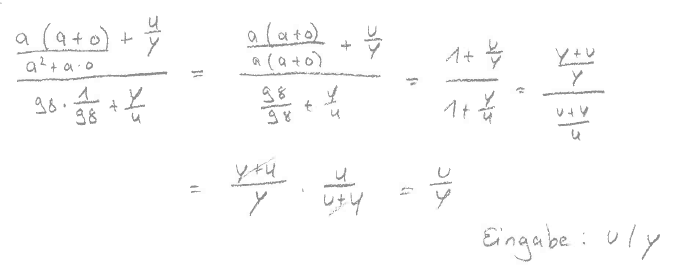 \frac{\frac{a(a+o)}{a^2+a \cdot o} + \frac{u}{y}}{98 \cdot \frac{1}{98} + \frac{y}{u}} = \frac{\frac{a(a+o)}{a(a+o)} + \frac{u}{y}}{\frac{98}{98} + \frac{y}{u}} = \frac{1+\frac{u}{y}}{1+\frac{y}{u}} = \frac{\frac{y+u}{y}}{\frac{u+y}{u}}
= \frac{y+u}{y} \cdot \frac{u}{u+y} = \frac{u}{y}
Eingabe: u/y